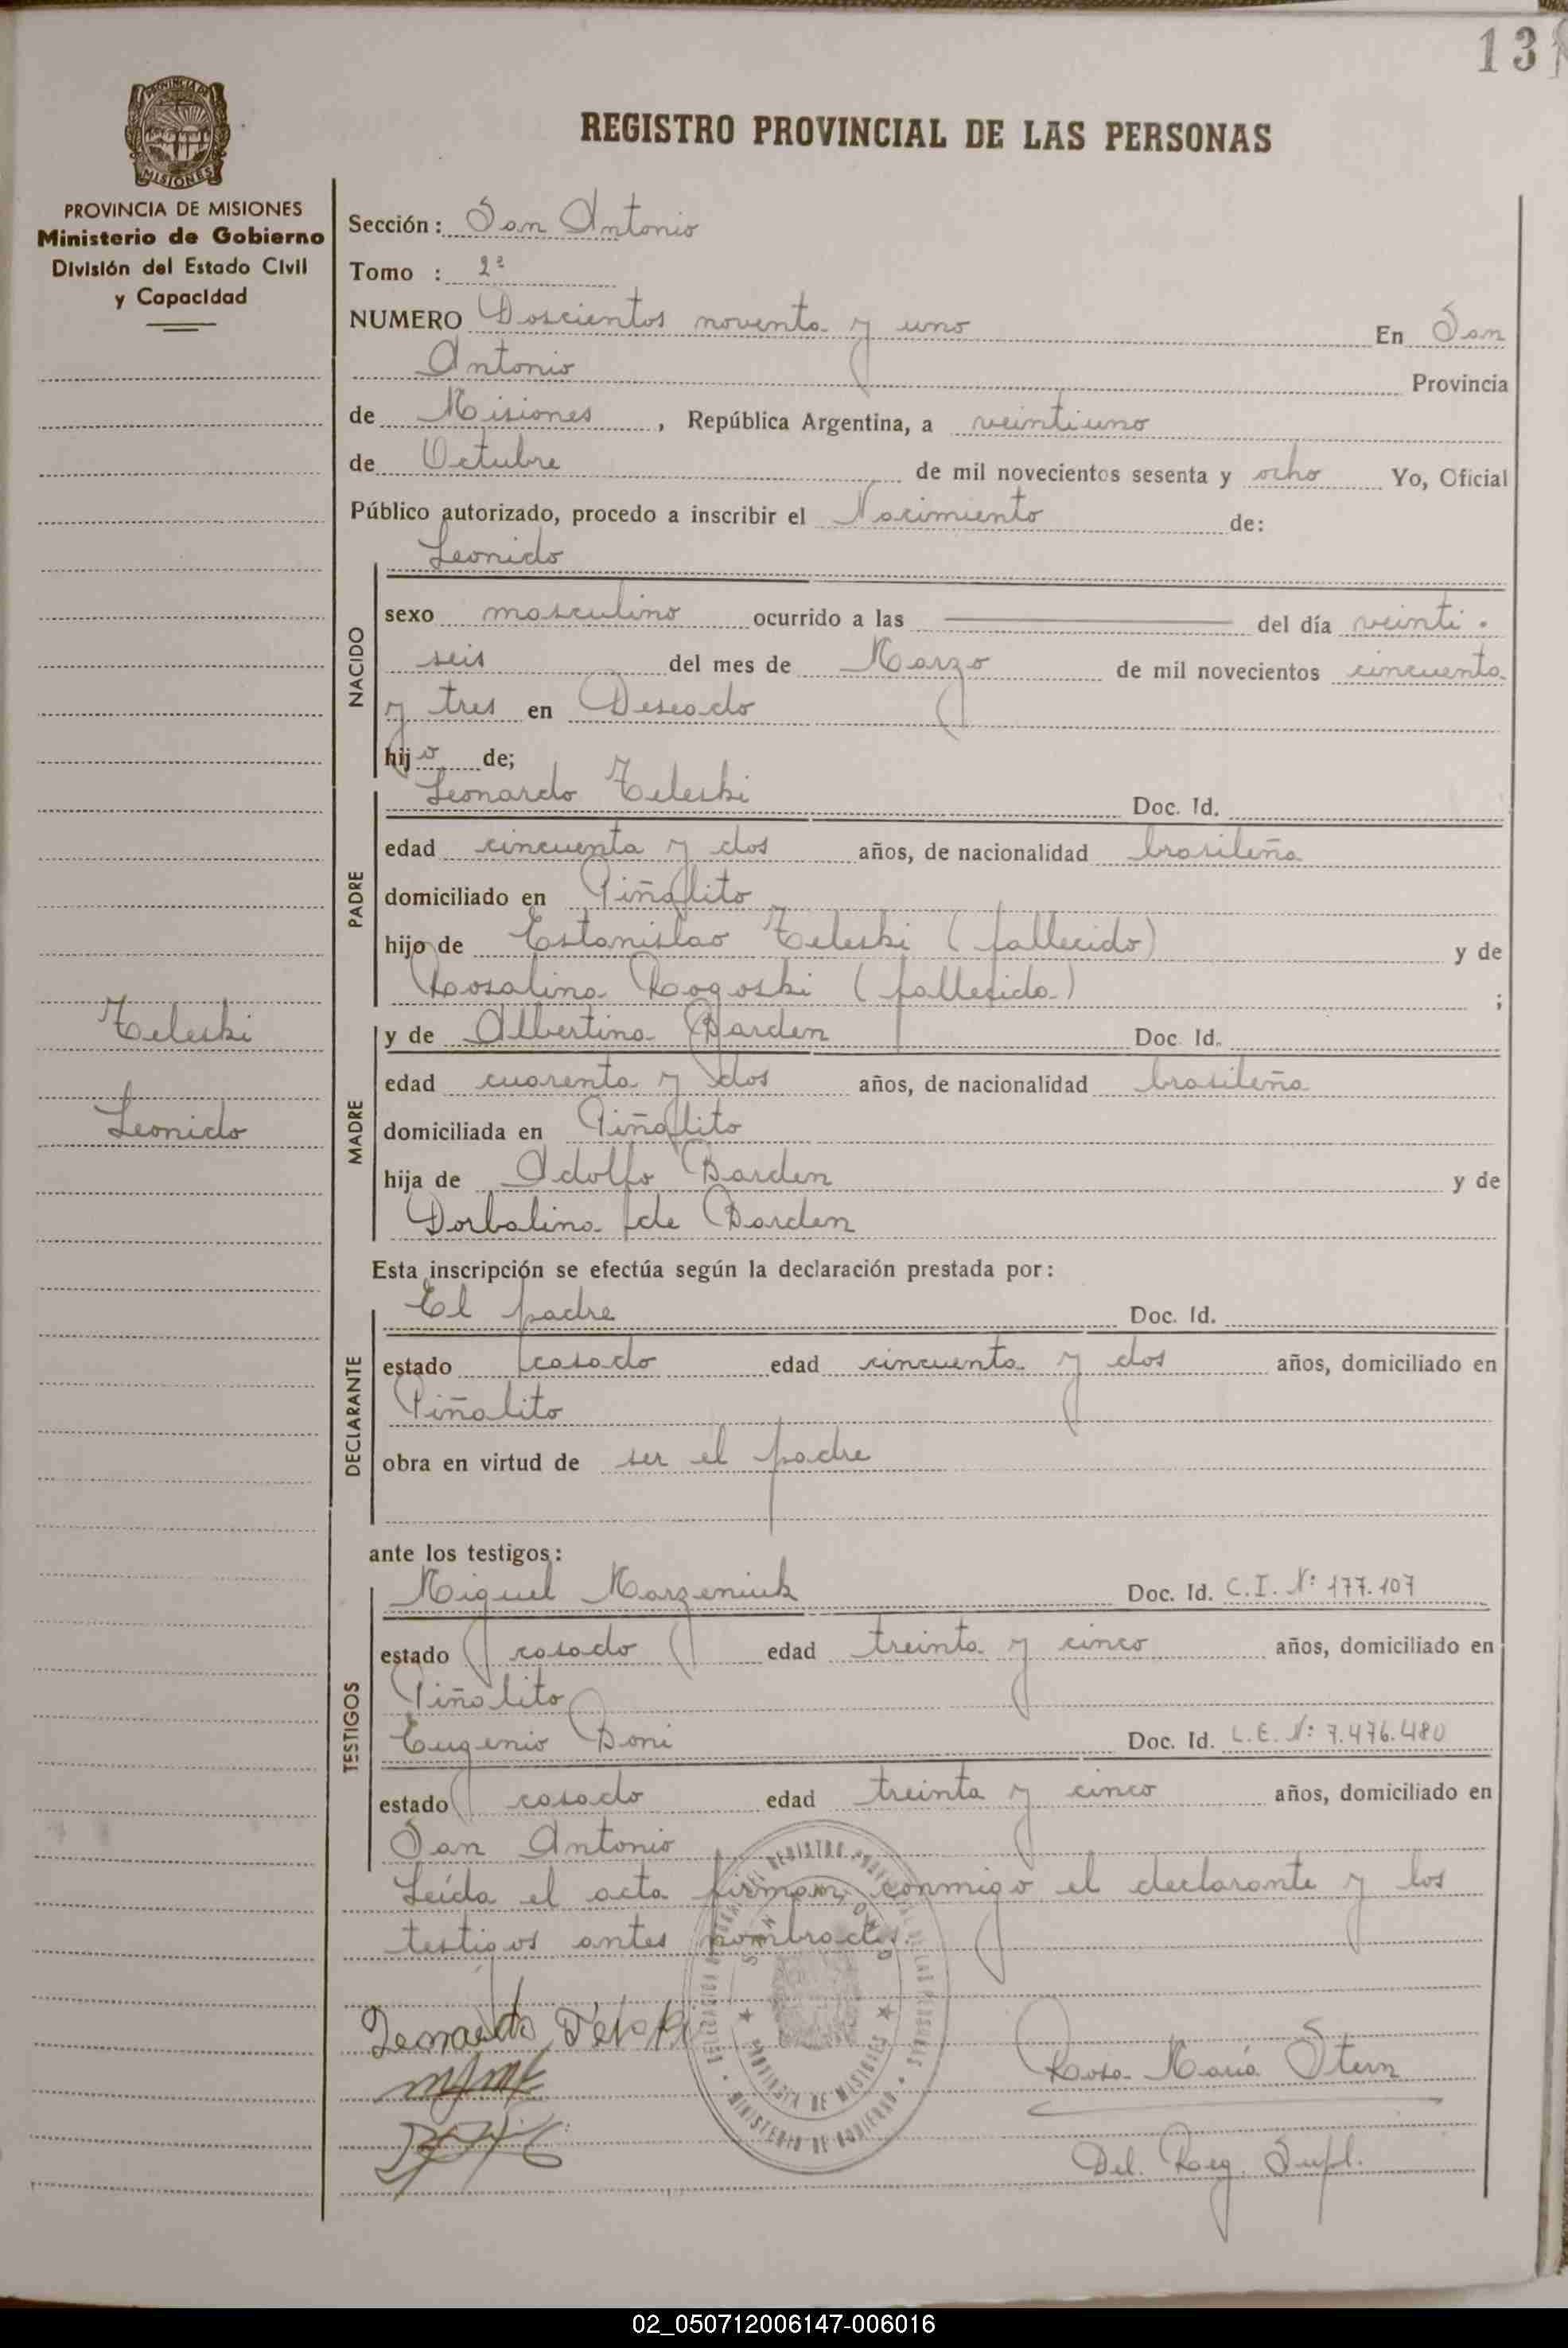 13
PROVINCIA DE
MISIONES
PROVINCIA DE MISIONES
Ministerio de Gobierno
División del Estado Civil
y Capacidad
REGISTRO PROVINCIAL DE LAS PERSONAS
Sección: San Antonio
Tomo : 2º
NUMERO Doscientos noventa y uno En San
Antonio Provincia
de Misiones, República Argentina, a veintiuno
de Octubre de mil novecientos sesenta y ocho Yo, Oficial
Público autorizado, procedo a inscribir el Nacimiento de:
NACIDO
Leonido
sexo masculino ocurrido a las del día veinti
seis del mes de Marzo de mil novecientos cincuenta
y tres en Deseado
hijo de;
PADRE
Leonardo Teleski Doc. Id.
edad cincuenta y dos años, de nacionalidad brasileña
domiciliado en Piñalito
hijo de Estanislao Teleski (fallecido) y de
Rosalina Rogoski (fallecida) ;
MADRE
y de Albertina Barden Doc. Id.
edad cuarenta y dos años, de nacionalidad brasileña
domiciliada en Piñalito
hija de Adolfo Barden y de
Dorbalina de Barden
Teleski
Leonido
Esta inscripción se efectúa según la declaración prestada por:
DECLARANTE
El padre Doc. Id.
estado casado edad cincuenta y dos años, domiciliado en
Piñalito
obra en virtud de ser el padre
ante los testigos:
TESTIGOS
Miguel Marzeniuk Doc. Id. C.I. Nº 177.107
estado casado edad treinta y cinco años, domiciliado en
Piñalito
Eugenio Boni Doc. Id. L.E. Nº 7.476.480
estado casado edad treinta y cinco años, domiciliado en
San Antonio
Leída el acta firman conmigo el declarante y los
testigos antes nombrados.
SAN ANTONIO
PROVINCIA DE MISIONES
MINISTERIO DE GOBIERNO
Leonardo Teleski
Rosa María Stern
Del. Reg. Supl.
02_050712006147-006016